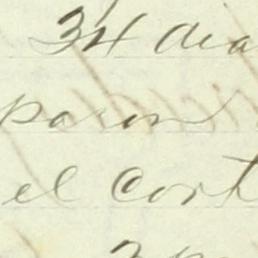 34 dia
paron
el Cort